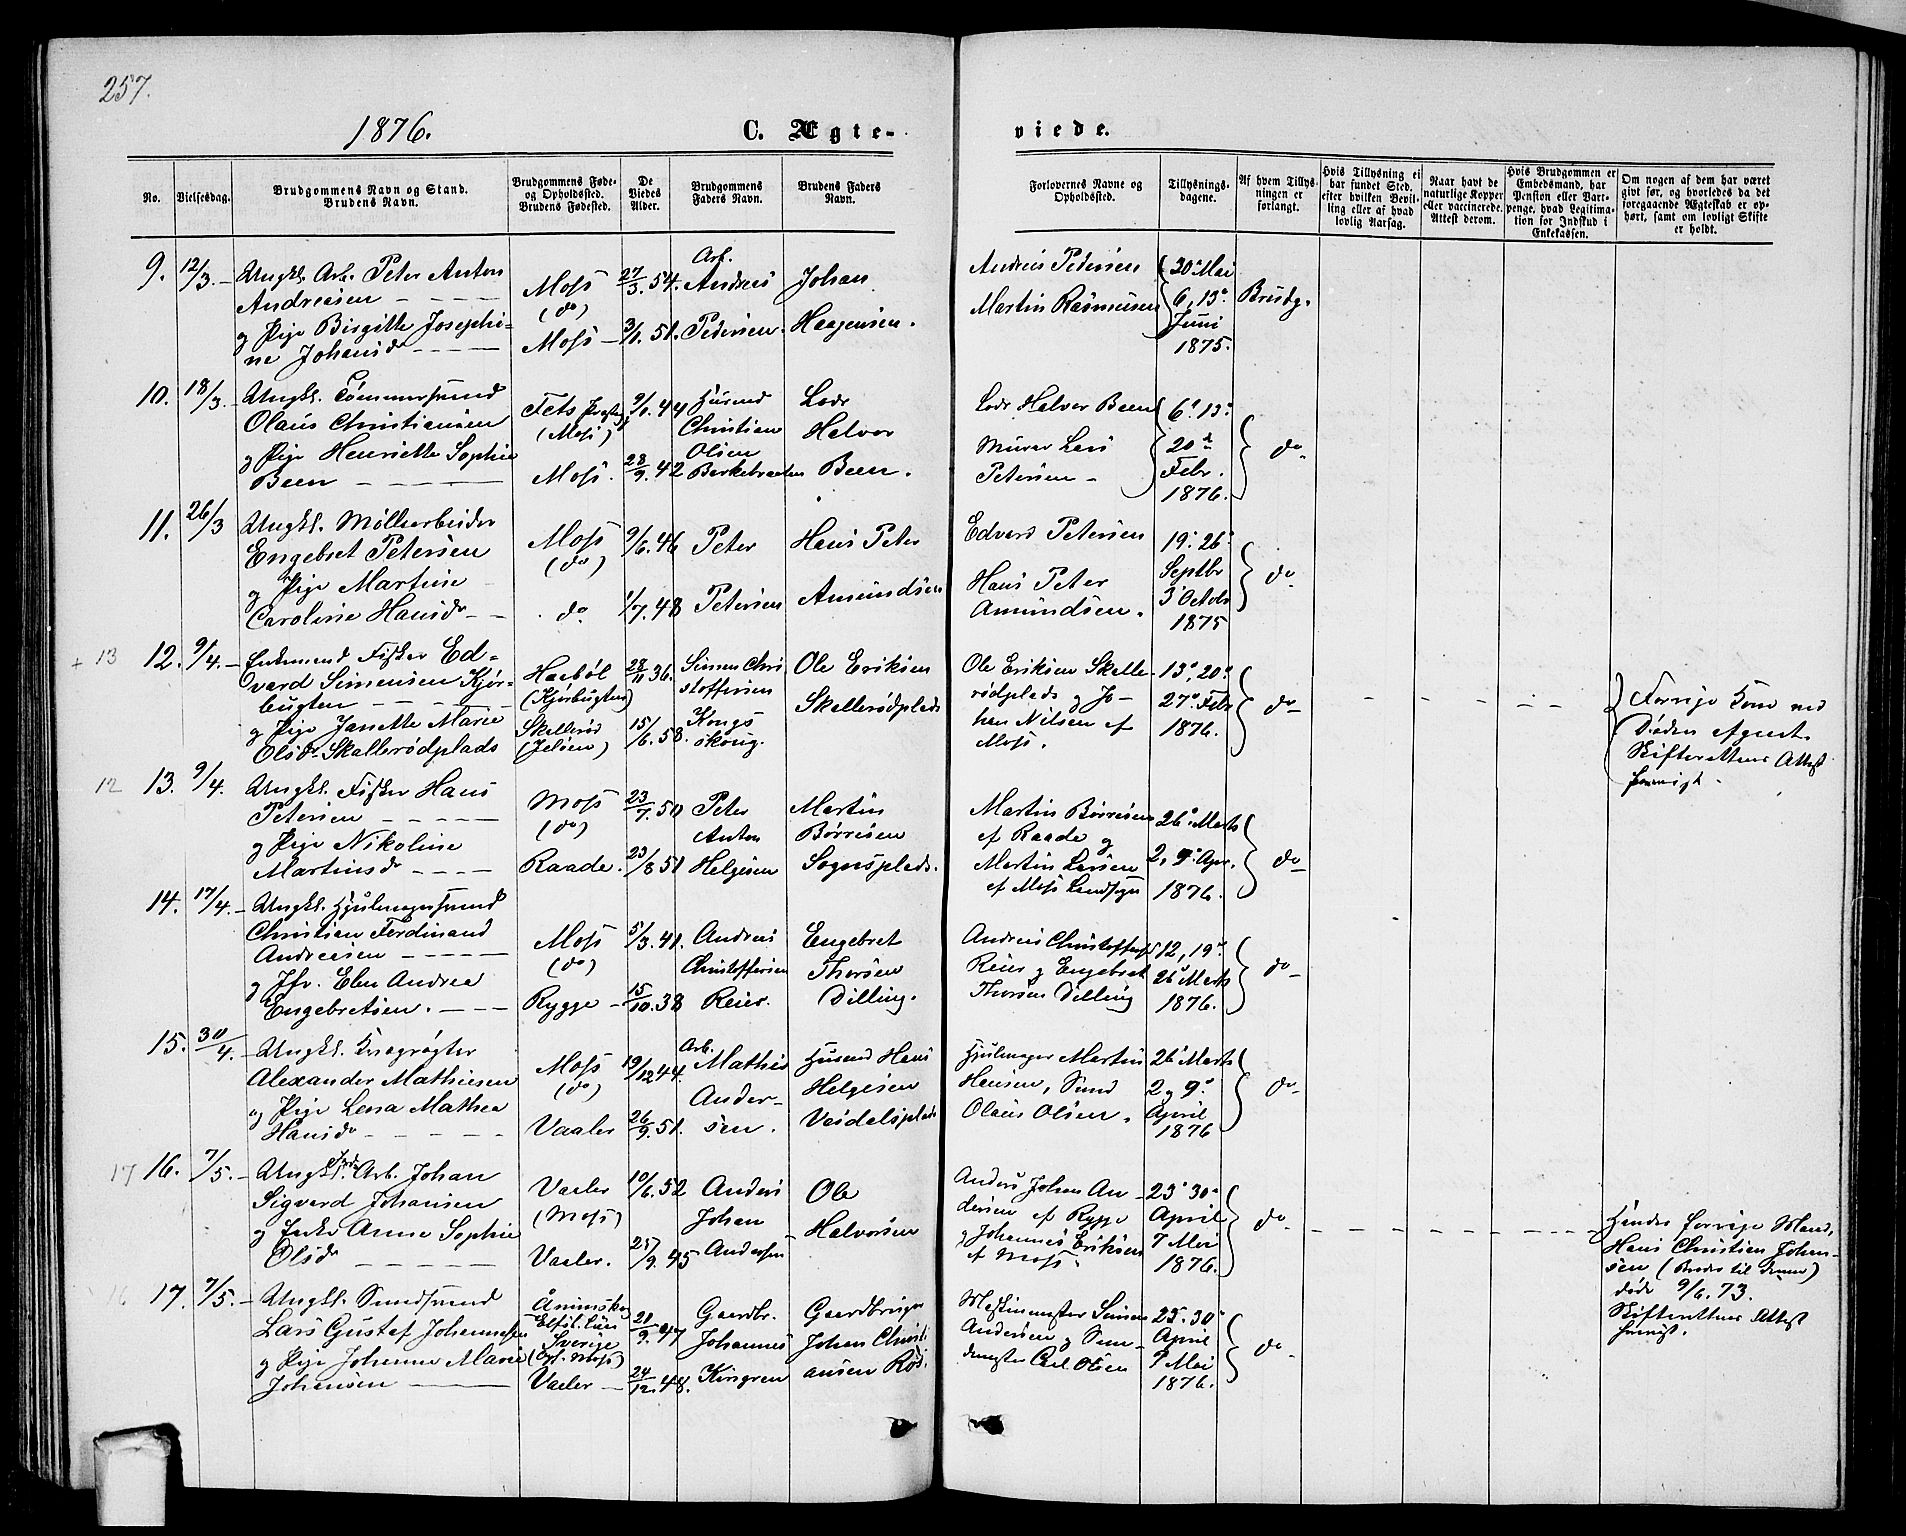 257.
1876.
C. Ægte-
viede.
No.
Vielsesdag.
Brudgommens Navn og Stand.
Brudens Navn.
Brudgommens Føde-
og Opholdssted.
Brudens Fødested.
De
Viedes
Alder.
Brudgommens
Faders Navn.
Brudens Faders
Navn.
Forlovernes Navne og
Opholdssted.
Tillysnings-
dagene.
Af hvem Tillys-
ningen er
forlangt.
Hvis Tillysning ei
har fundet Sted,
efter hvilken Bevil-
ling eller af hvad
lovlig Aarsag.
Naar havt de
naturlige Kopper
eller vaccinerede.
Attest derom.
Hvis Brudgommen er
Embedsmand, har
Pension eller Vart-
penge, hvad Legitima-
tion for Indskud i
Enkekassen.
Om nogen af dem har været
gift før, og hvorledes da det
foregaaende Ægteskab er op-
hørt, samt om lovligt Skifte
er holdt.
9. 12/3. – Ungkl. Arb. Peter Anton
Andreasen
og Pige Birgitte Josephi-
ne Johansd
Moss
(do)
Moss –
27/3. 54.
3/1. 51.
Arb.
Andreas
Pedersen.
Johan
Haagensen.
Andreas Pedersen
Martin Rasmussen
30e Mai
6, 13e
Juni
1875.
Brudg.
10. 18/3. – Ungkl. Tømmermand
Olaus Christiansen
og Pige Henriette Sophie
Been
Fets
(Moss)
Moss.
9/1. 44
28/9. 42
Husmd
Christian
Olsen
Berkebraaten
Lods
Halvor
Been.
Lods Halvor Been
Murer Lars
Petersen –
6e 13e
20e
Febr.
1876.
do
11. 26/3 Ungkl. Møllerbeider
Engebret Petersen
og Pige Martine
Caroline Hansd –
Moss
(do)
do
9/6. 46
1/7. 48
Peter
Petersen
Hans Peter
Amundsen
Edvard Petersen
Hans Peter
Amundsen.
19. 26e
Septbr
3 Octobr
1875
do
+ 13
12. 9/4. – Enkemand Fisker Ed-
vard Simensen Kjør-
bugten
og Pige Janette Marie
Olsd Skallerødplads
Haabøl
(Kjørbugten)
Skallerød
(Jeløen)
28/11 36.
15/6. 58.
Simen Chri
stoffersen
Kongs
skoug.
Ole Eriksen
Skallerødplads
Ole Eriksen Skalle-
rødplads og Jo-
han Nilsen af
Moss.
13e, 20e
27e Febr
1876.
do
Forrige Kone ved
Døden afgaaet.
Skifterettens Attest
12
13. 9/4. Ungkl. Fisker Hans
Petersen
og Pige Nikoline
Martinsd
Moss
(do)
Raade.
23/7. 50
23/8 51
Peter
Anton
Helgesen
Martin
Børresen
Sognsplads.
Martin Børresen
af Raade og
Martin Larsen
af Moss Landsogn
26e Marts
2, 9e Apr.
1876.
do
14. 17/4. – Ungkl. Hjulmagersvend
Christian Ferdinand
Andreasen
og Jfr. Elen Andrea
Engebretsen.
Moss
(do)
Rygge –
5/3. 41.
15/10. 38
Andreas
Christoffersen
Reier.
Engebret
Thorsen
Dilling.
Andreas Christoffersen
Reier og Engebret
Thorsen Dilling
12, 19e
26e Marts
1876.
do
15. 30/4. – Ungkl. Kragrøgter
Alexander Mathiesen
og Pige Lena Mathea
Hansd
Moss
(do)
Vaaler
19/12 44.
26/9. 51.
Arb.
Mathis
Ander-
sen.
Husmd Hans
Helgesen
Veidelsplads
Hjulmager Martin
Hansen, Smed
Olaus Olsen.
26e Marts
2 og 9e
April
1876
do
17
16. 7/5. – Ungkl. Arb. Johan
Sigvard Johansen
og Enke Anne Sophie
Olsd
Vaaler
(Moss)
Vaaler.
10/6. 52
25/9. 45
Anders
Johan
Andersen
Ole
Halvorsen
Anders Johan An-
dersen af Rygge
og Johannes Eriksen
af Moss.
23e 30e
April
7 Mai
1876.
do
Hendes forrige Mand,
Hans Christian Johan-
sen (Broder til denne)
døde 9/6. 73.
Skifterettens Attest
16
17. 7/5. – Ungkl. Smedsvend
Lars Gustaf Johannessen
og Pige Johanne Marie
Johansen
Ånimskog
Elfsb. Län
Sverige
(Moss)
Vaaler –
20/9. 47
24/12. 48.
Gaardbr.
Johannes
Kirsgren
Gaardbruger
Johan Christi
ansen Rød.
Maskinmester Simen
Andersen og Sme-
demester Carl Olsen
23. 30e
April
7 Mai
1876.
do